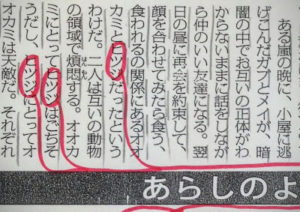 ある嵐の晩に、小屋に逃
げこんだガブとメイが、暗
闇の中でお互いの正体がわ
からないままに話をしなが
ら仲のいい友達になる。翌
日の昼に再会を約束して、
顔を合わせてみたら食う、
食われるの関係にあるオオ
カミとヒツジだったという
わけだ。二人は互いの動物
の領域で煩悶する。オオカ
ミにとってヒツジはごちそ
うだし、ヒツジにとってオ
オカミは天敵だ。それぞれ
あらしのよ